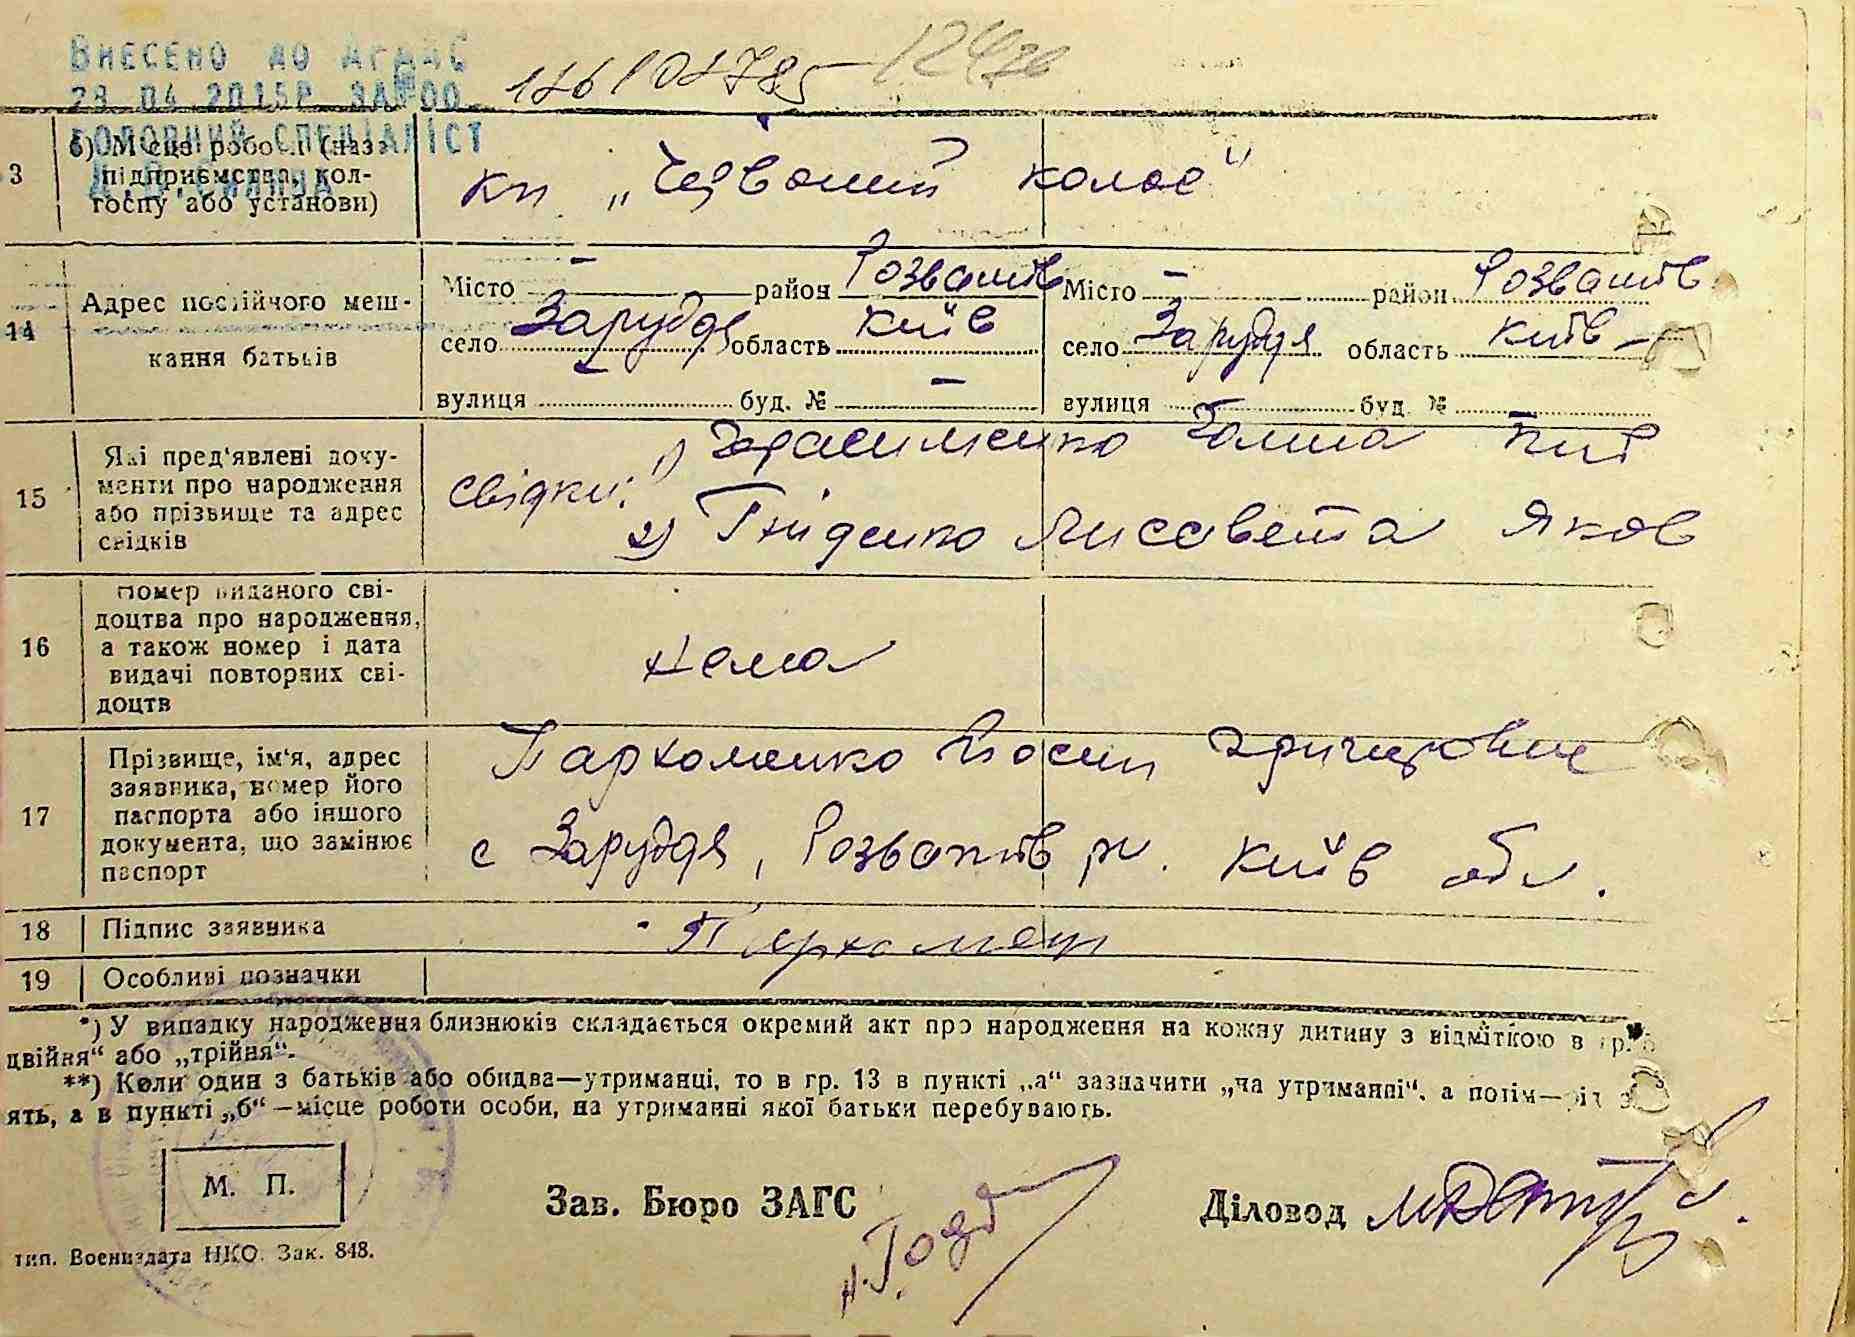 Внесено до АРДАС
28 04 2015Р.
ГОЛОВНИЙ СПЕЦІАЛІСТ
б) Місце роботи (назва
3 підприємства, кол-
госпу або установи)
кп „Червоний колос"
14 Адрес постійного меш-
кання батьків
Місто – район Розважів
село Заруддя область Київ
вулиця буд. № –
Місто – район Розважів
село Заруддя область Київ –
вулиця буд № –
15 Які пред'явлені доку-
менти про народження
або прізвище та адрес
свідків
свідки: 1) Герасименко Галина
2) Гниденко Лисавета Яков
16 Номер виданого сві-
доцтва про народження,
а також номер і дата
видачі повторних сві-
доцтв
нема
17 Прізвище, ім'я, адрес
заявника, номер його
паспорта або іншого
документа, що замінює
паспорт
Пархоменко Йосип Грицькович
с Заруддя, Розважів рн. Київ обл.
18 Підпис заявника
Пархомен
19 Особливі позначки
*) У випадку народження близнюків складається окремий акт про народження на кожну дитину з відміткою в гр.
двійня“ або „трійня“.
**) Коли один з батьків або обидва—утриманці, то в гр. 13 в пункті „а“ зазначити „на утриманні“, а потім—від
ять, а в пункті „б“ —місце роботи особи, на утриманні якої батьки перебувають.
М. П.
Зав. Бюро ЗАГС
Діловод
тип. Воениздата НКО. Зак. 848.